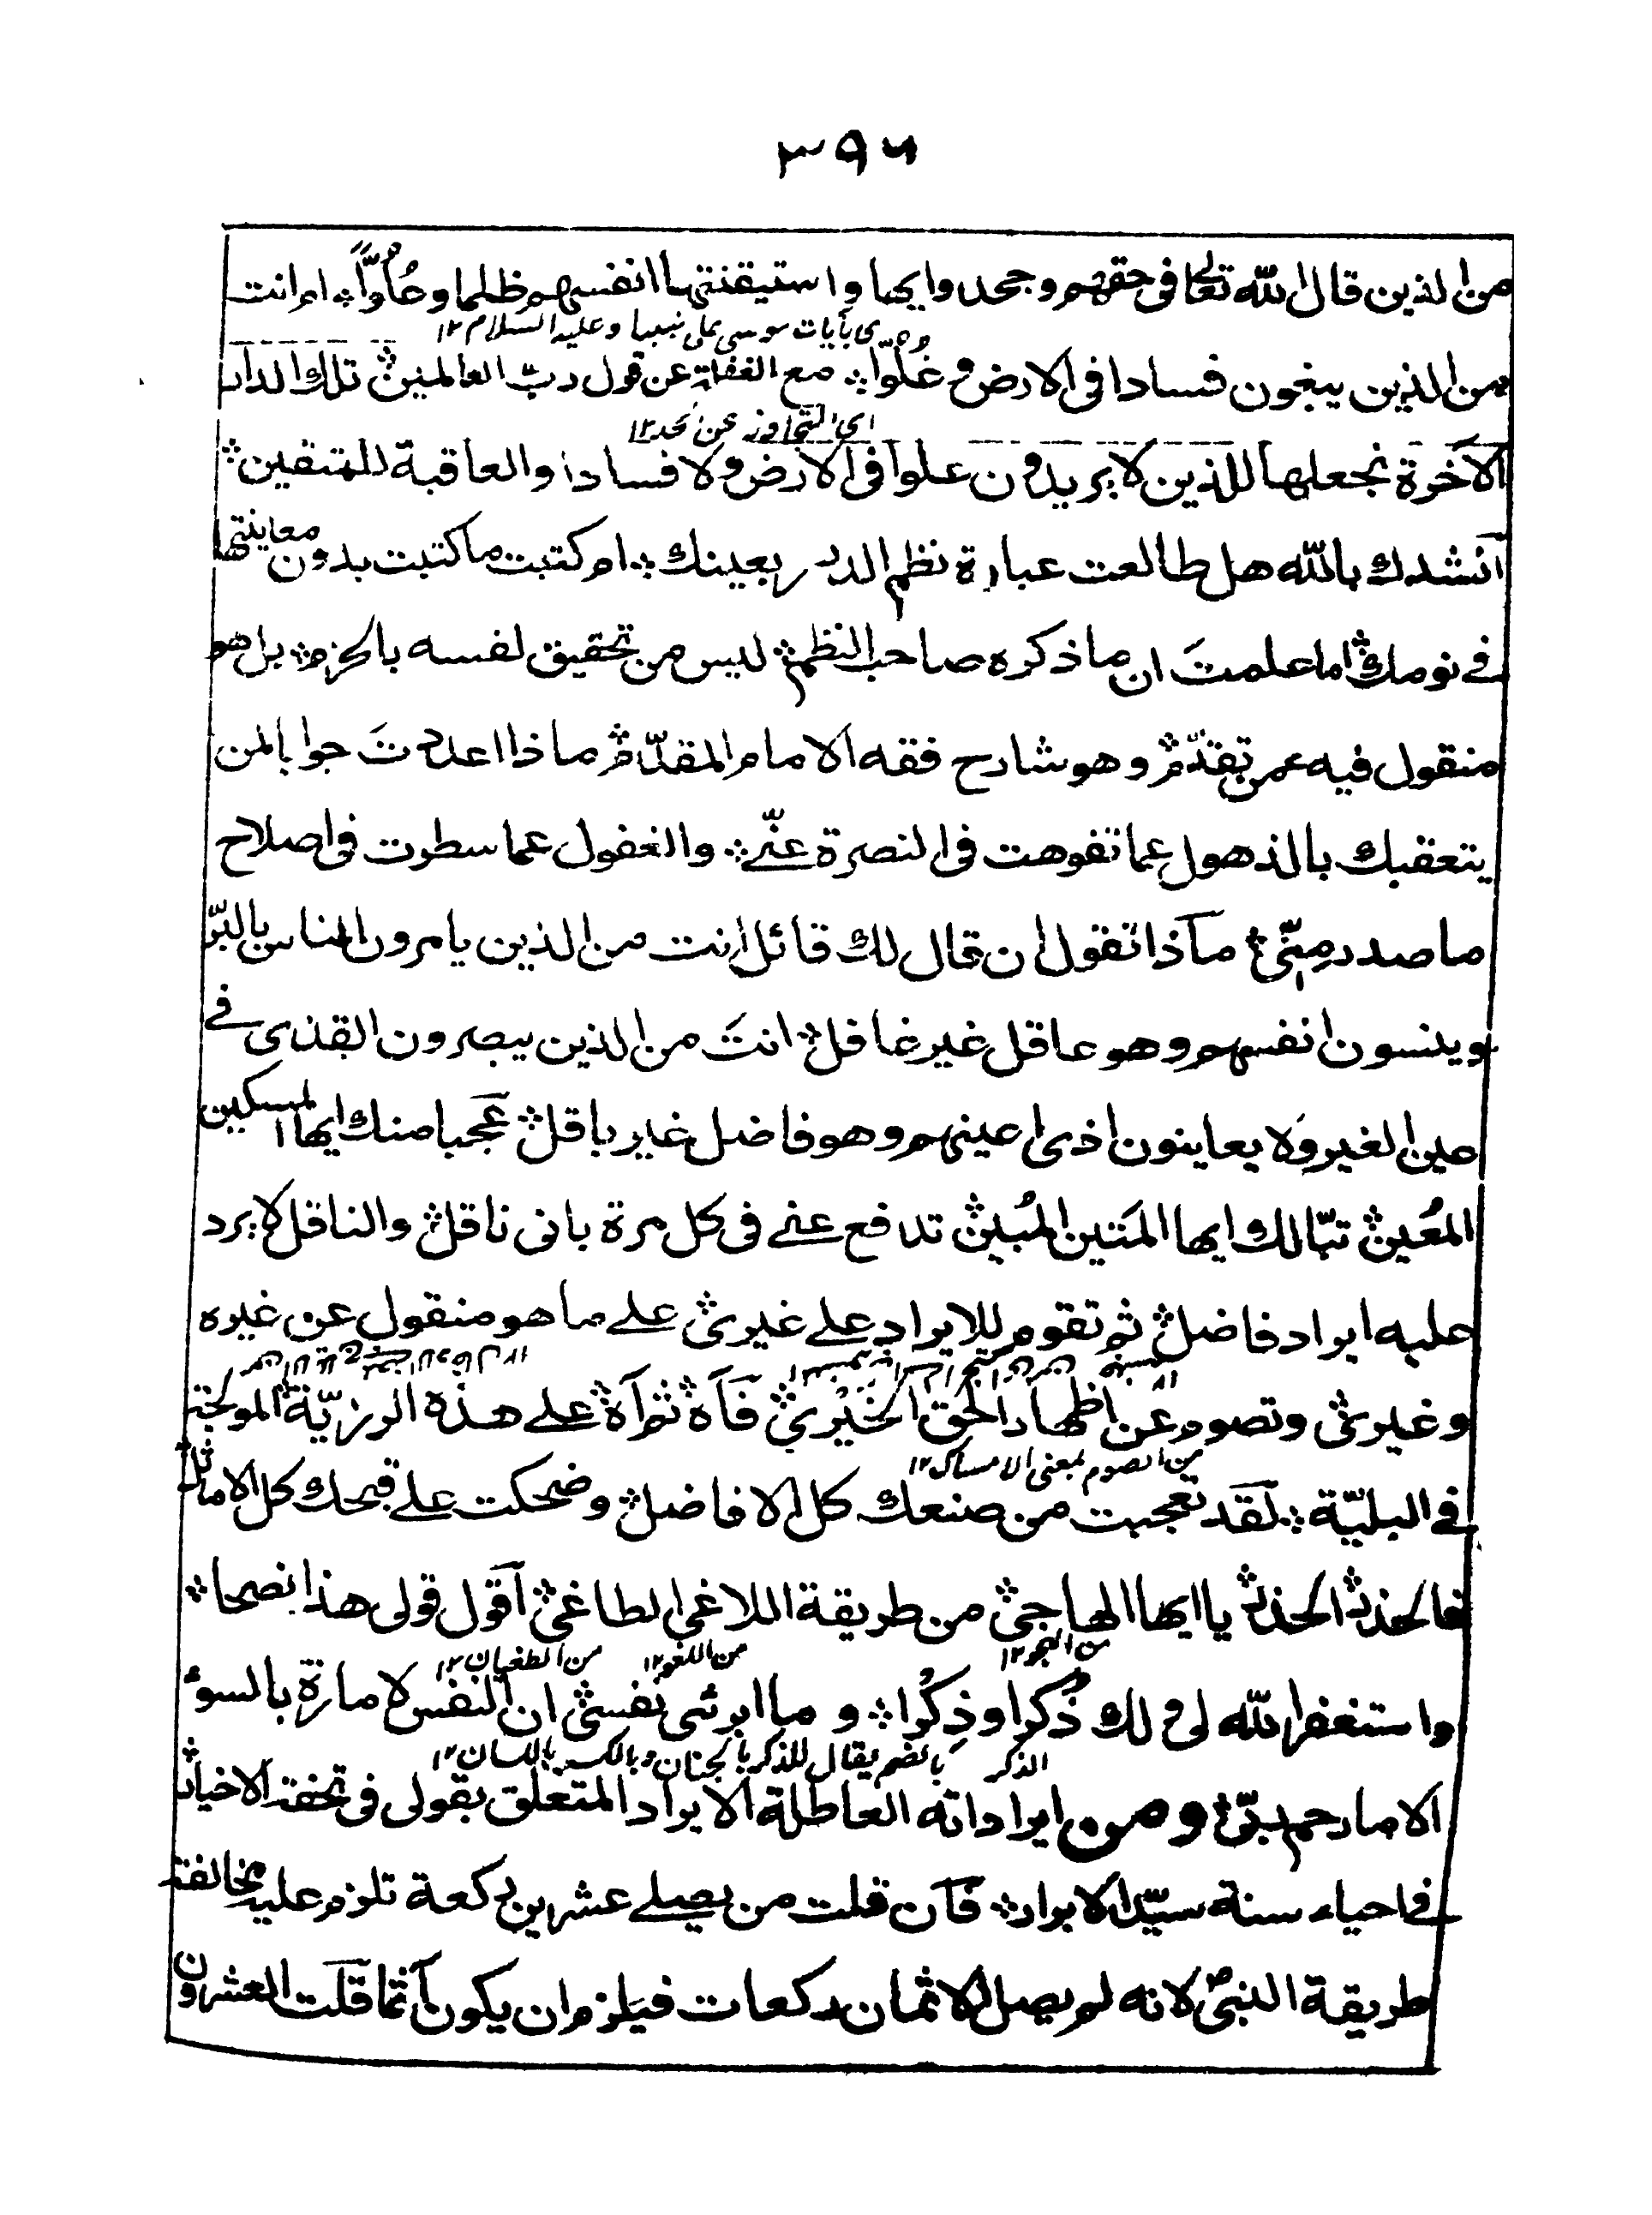 ٣٩٦
من الذين قال الله تعالى فى حقهم وجحدوا بها واستيقنتها انفسهم ظلما وعُلُوًّا ؞ ام انت
اى بآيات موسى على نبينا وعليه السلام ١٢
من الذين يبغون فسادا فى الارض وغُلُوّا ؞ مع الغفلة عن قول ربّ العالمين ؞ تلك الدار
اى التجاوز عن الحد ١٢
الآخرة نجعلها للذين لا يريدون علوا فى الارض ولا فسادا والعاقبة للمتقين ؞
اَنشدك بالله هل طالعت عبارة نظم الدرر بعينك ؞ ام كتبت ما كتبت بدون معاينتها
فے نومك ؞ اما علمتَ ان ما ذكره صاحب النظم ؞ ليس من تحقيق لفسه بالجزم ؞ بل هو
منقول فيه عمن تقدّم ؞ وهو شارح فقه الامام المقدّم ؞ ماذا اعددتَ جوابا لمن
يتعقبك بالذهول عما تفوهت فى النصرة عنّے ؞ والغفول عما سطرت فى اصلاح
ما صدر مِنّى ؞ مآذا تقول ان قال لك قائل انت من الذين يامرون الناس بالبّر
وينسون انفسهم وهو عاقل غير غافل ؞ انتَ من الذين يبصرون القذى فے
عين الغير وَلا يعاينون اذى اعينهم وهو فاضل غير باقل ؞ عَجبا منك ايها المسكين
المُعين ؞ تبّا لك ايها المَتين المُبين ؞ تدفع عنے فى كل مرة بانى ناقل ؞ والناقل لا يرد
عليه ايراد فاضل ؞ ثم تقوم للايراد علے غيرى ؞ علے ما هو منقول عن غيره
وغيرى ؞ وتصوم عن اظهار الحق الخَيْرى ؞ فَآه ؞ ثم آه ؞ علے هذه الرزيّة ؞ الموقحة
من الصوم بمعنى الامساك ١٢
فے البليّة ؞ لَقَد تعجبت من صنعك كل الافاضل ؞ وضحكت علے قبحك كل الاماثل
فالحذر ؞ الحذر ؞ يا ايها الهاجى ؞ من طريقة اللاغى الطاغى ؞ اَقول قولى هذا نصحا ؞
من الهجو ١٢ من اللغو ١٢ من الطغيان ١٢
واستغفر الله لى ولك ذُكرا وذِكرا ؞ وما ابرئى نفسى ؞ ان النفس لامارة بالسوء
الذكر بالضم يقال للذكر بالجنان وبالكسر باللسان ١٢
الا ما رحم ربّى ؞ ومن ايراداته العاطلة الايراد المتعلق بقولى فى تحفة الاخيار ؞
فے احياء سنة سيّد الابرار ؞ فَان قلت من يصلے عشرين ركعة تلزم عليه مخالفة
طريقة النبىؐ لانه لم يصل الا ثمان ركعات فيلزم ان يكون آثما قلت العشرون